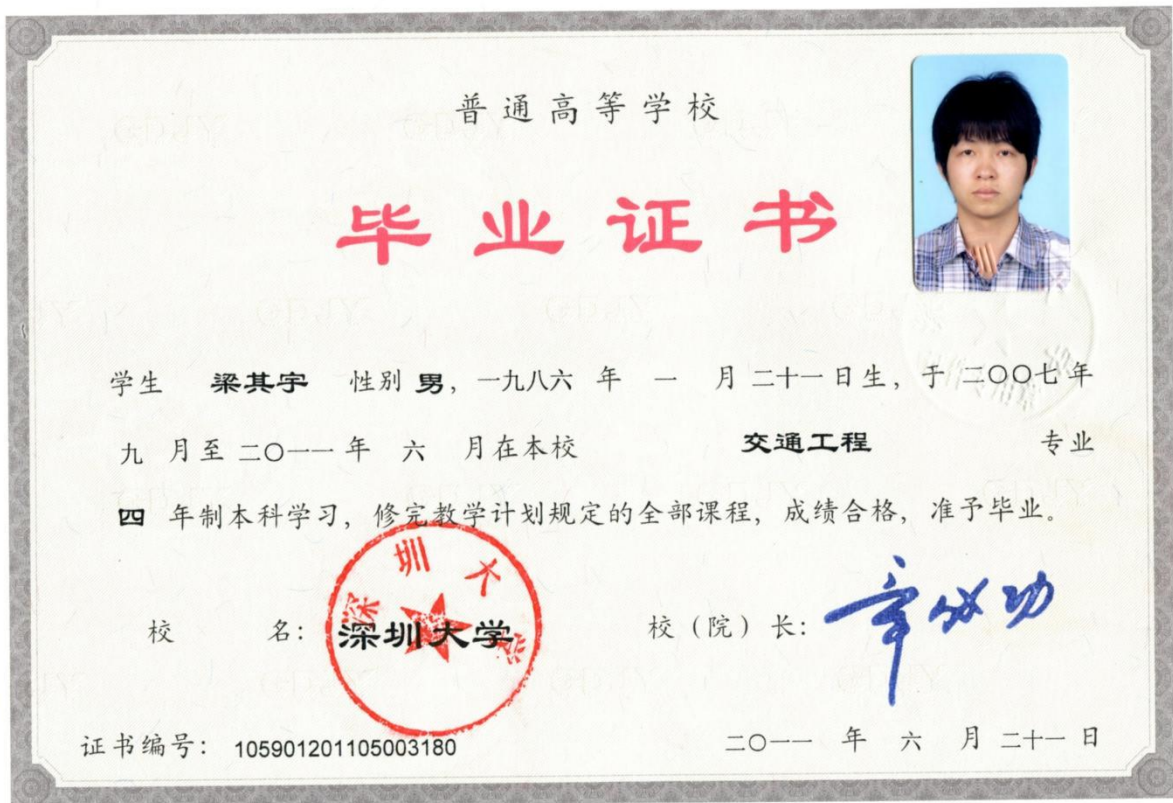 普通高等学校
毕业证书
学生 梁其宇 性别 男，一九八六 年 一 月 二十一 日生，于 二〇〇七 年
九 月至 二〇一一 年 六 月在本校 交通工程 专业
四 年制本科学习，修完教学计划规定的全部课程，成绩合格，准予毕业。
深圳大学
校 名：深圳大学 校（院）长：章必功
证书编号：105901201105003180 二〇一一 年 六 月 二十一 日